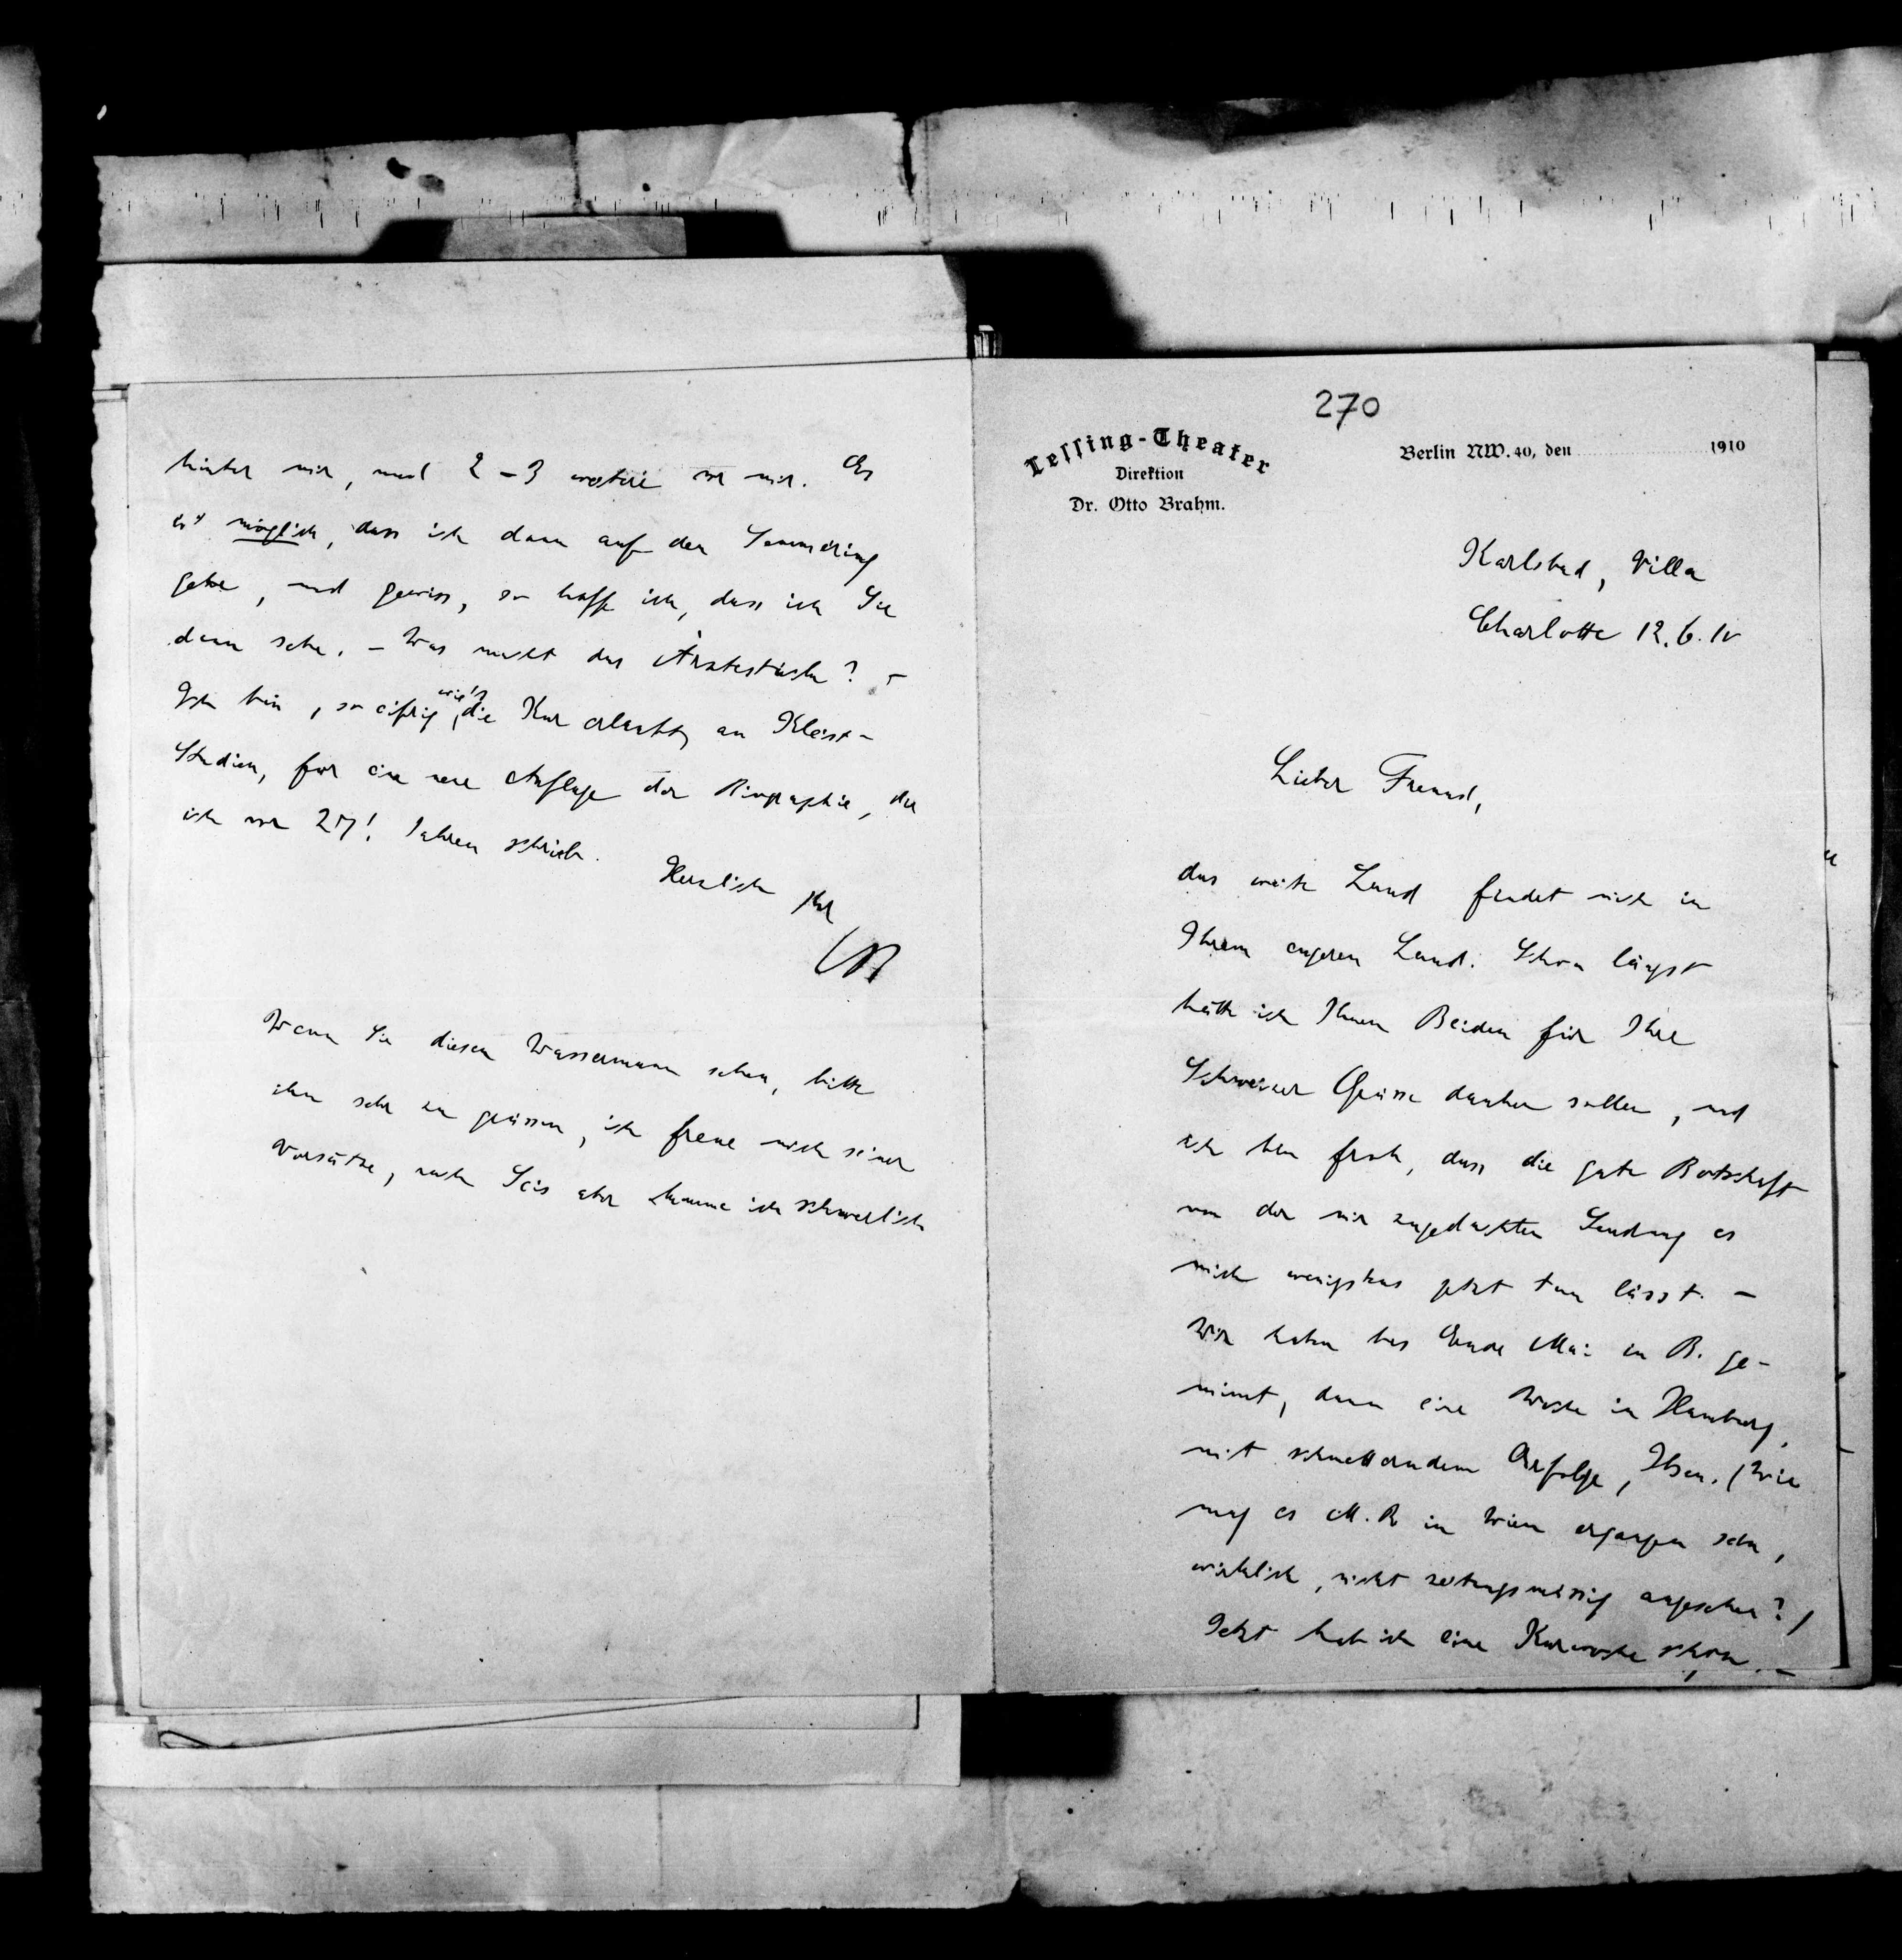 270
Lessing-Theater
Direktion
Dr. Otto Brahm.
Berlin NW. 40, den 1910
Karlsbad, Villa
Charlotte 12.6.10
Lieber Freund,
das weite Land findet mich in
Ihrem engeren Land. Schon längst
hätte ich Ihnen Beiden für Ihre
Schweizer Grüsse danken sollen, und
ich bin froh, dass die gute Botschaft
von der mir zugedachten Sendung es
mich wenigstens jetzt tun lässt. –
Wir haben bis Ende Mai in B. ge-
mimt, dann eine Woche in Hamburg,
mit schmetterndem Erfolge, Ibsen. (Wie
mag es M. R in Wien ergangen sein,
wirklich, nicht zeitungsmässig angesehen?)
Jetzt hab ich eine Kurwoche schon –
hinter mir, und 2–3 weitere vor mir. Es
ist möglich, dass ich dann auf den Semmering
gehe, und gewiss, so hoffe ich, dass ich Sie
dann sehe. – Was macht das Ärztestück? –
Ich bin, so eifrig wie's die Kur erlaubt, an Kleist-
Studien, für eine neue Auflage der Biographie, die
ich vor 27! Jahren schrieb.
Herzlich Ihr
OB
Wenn Sie diesen Wassermann sehen, bitte
ihn sehr zu grüssen, ich freue mich seiner
Vorsätze, nach Seis aber komme ich schwerlich